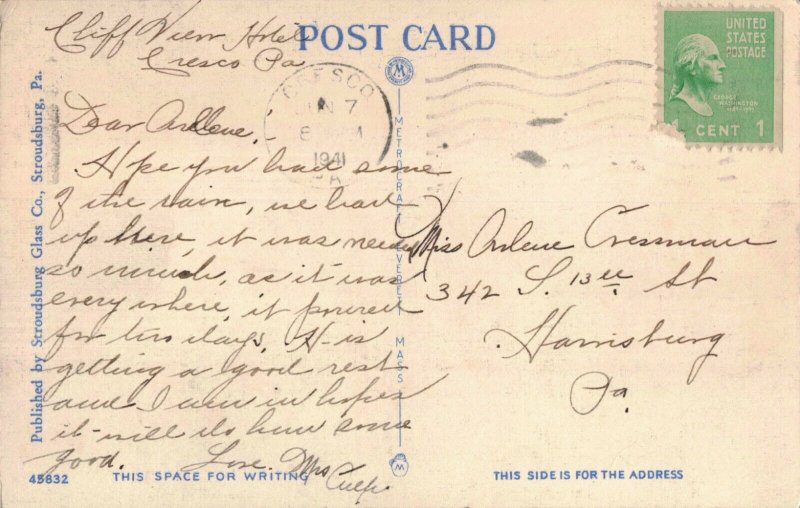 Cliff View Hotel
Cresco Pa
POST CARD
CRESCO
1941
PA
UNITED
STATES
POSTAGE
GEORGE
WASHINGTON
1789-1797
CENT 1
Dear Arlene,
Hope you had some
of the rain, we had
up here, it was needed
so much, as it was
every where, it poured
for two days. H- is
getting a good rest
and I am in hopes
it will do him some
good. Love. Mrs Culp
Miss Arlene Cressman
342 S. 13th St
Harrisburg
Pa.
Published by Stroudsburg Glass Co., Stroudsburg, Pa.
METROCRAFT EVERETT MASS
45832
THIS SPACE FOR WRITING
THIS SIDE IS FOR THE ADDRESS